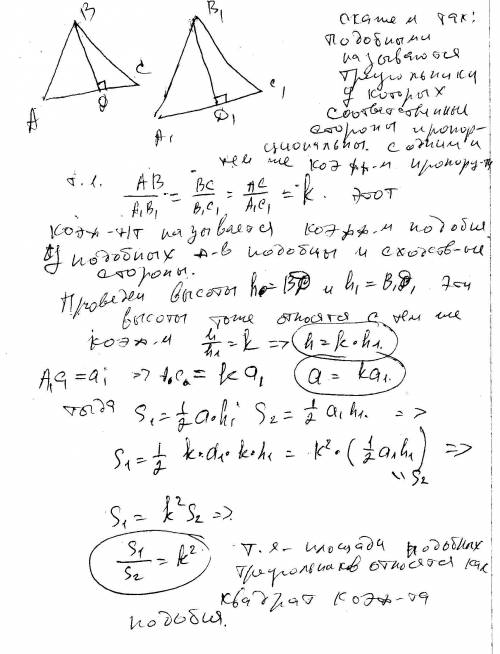 B
B₁
скажем так:
подобными
называются
треугольники
у которых
C
A
D
C₁
D₁
A₁
соответственные
стороны пропор-
циональны с одним и
тем же коэфф-м
т.е. AB/A₁B₁ = BC/B₁C₁ = AC/A₁C₁ = k. этот
коэф-нт называется коэфф-м подобия
У подобных Δ-в подобны и сходств-ые
стороны.
Проведем высоты h = BD и h₁ = B₁D₁ эти
высоты тоже относятся с тем же
коэф.м h/h₁ = k => h = k·h₁.
=> = ka₁ a = ka₁
тогда S₁ = ½ a·h; S₂ = ½ a₁h₁ =>
S₁ = ½ k·a₁·k·h₁ = k²·(½a₁h₁) =>
S₂
S₁ = k²S₂ =>
S₁/S₂ = k². т.е – площади подобных
треугольников относятся как
квадрат коэф-та
подобия.